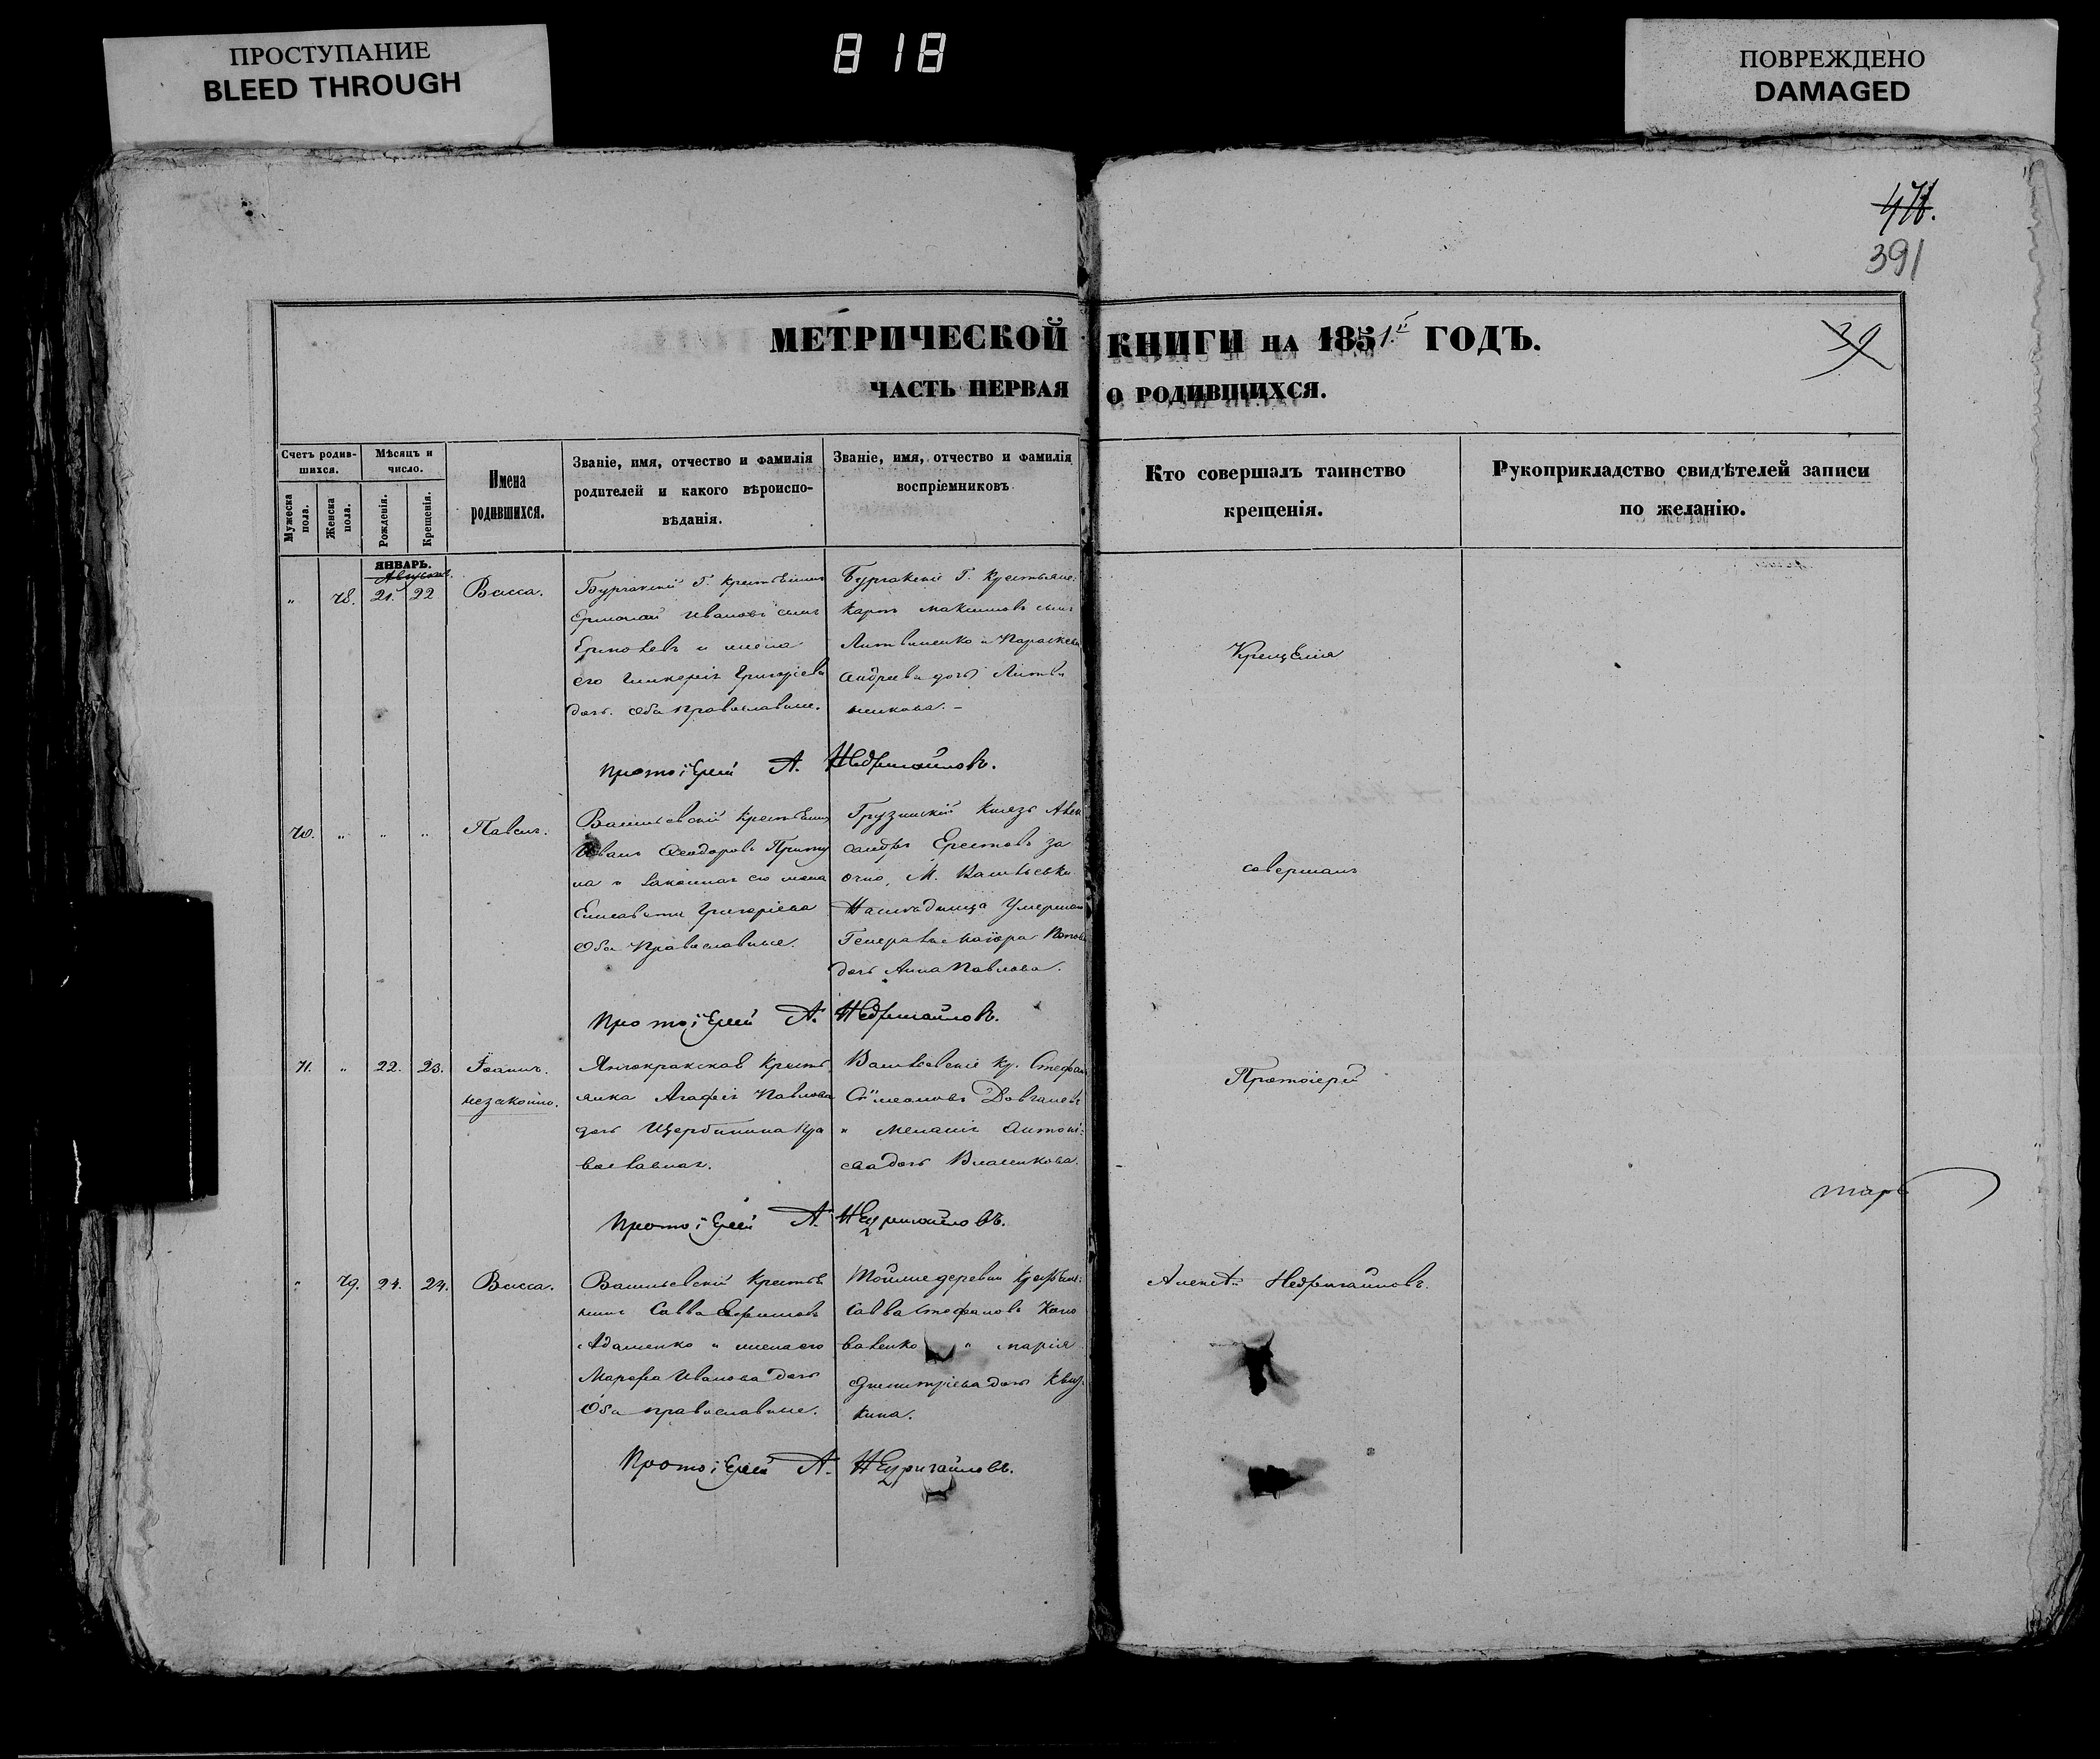 ПРОСТУПАНИЕ
BLEED THROUGH
818
ПОВРЕЖДЕНО
DAMAGED
391
39
МЕТРИЧЕСКОЙ КНИГИ НА 1851й ГОДЪ.
ЧАСТЬ ПЕРВАЯ О РОДИВШИХСЯ.
Счетъ родив-
шихся.
Мужеска
пола.
Женска
пола.
Мѣсяцъ и
число.
Рожденія.
Крещенія.
Имена
родившихся.
Званіе, имя, отчество и фамилія
родителей и какого вѣроиспо-
вѣданія.
Званіе, имя, отчество и фамилія
воспріемниковъ
Кто совершалъ таинство
крещенія.
Рукоприкладство свидѣтелей записи
по желанію.
ЯНВАРЬ.
Августъ.
" 78. 21. 22 Васса.
Ивановъ сынъ
и жена
его Григоріева
дочь. Оба православные.
Карпъ Максимовъ сынъ
Литвиненко и Параскева
Андреева дочь
Крещенія
Протоіерей А. Недригайловъ.
70. " " " Павелъ.
Васильевскій крестьянинъ
Иванъ Феодоровъ
и законная его жена
Елисавета Григоріева
Оба Православные.
Грузинскій Князь Алек
сандръ Еристовъ за
очно, М. Васильевки
Генералъ Маіора Попова
дочь Анна Павлова.
совершалъ
Протоіерей А. Недригайловъ.
71. " 22. 23. Іоаннъ.
незаконно.
крестъ
янка Агафія Павлова
дочь Щербинина Пра
вославная.
Васильевскіе кр. Стефанъ
Сѵмеоновъ
и Меланія Антоні
ева дочь Власенкова.
Протоіерей
Протоіерей А. Недригайловъ.
" 79. 24. 24. Васса.
Васильевскій крестья
нинъ Савва Ефимовъ
Адаменко и жена его
Марфа Иванова дочь
Оба православные.
Тойже деревни
Савва Стефановъ Коно
валенко и Марія
Димитріева дочь
кина.
Алексѣй Недригайловъ.
Протоіерей А. Недригайловъ.